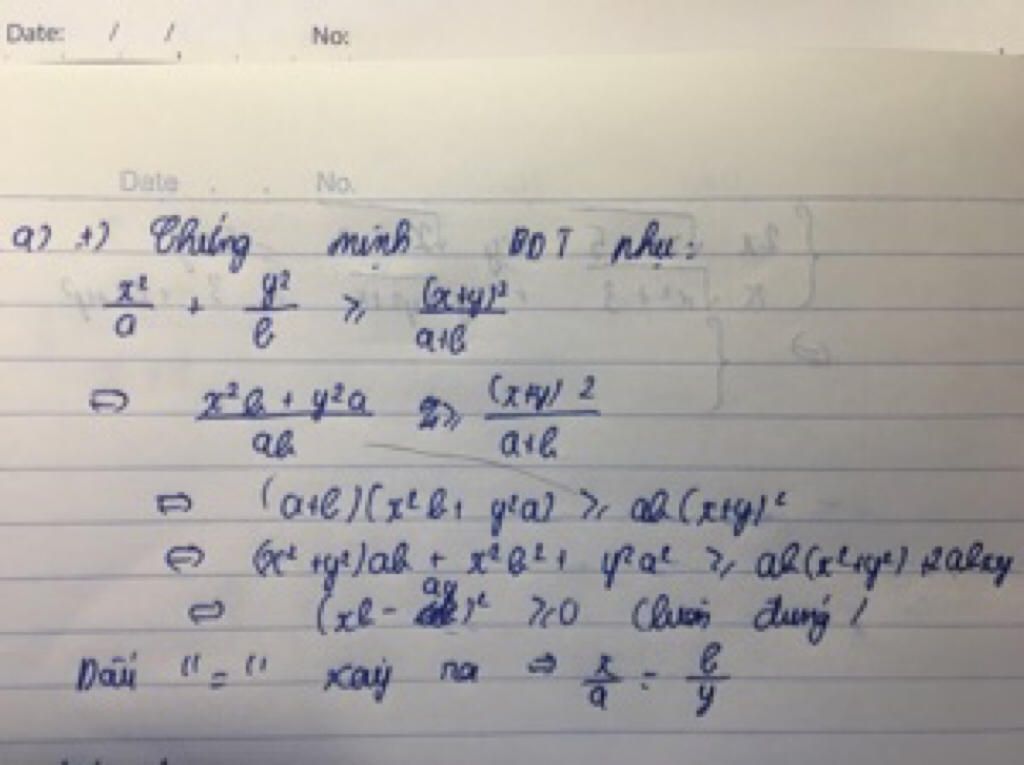 Date: / / No:
Date . . No.
a) +) Chứng minh BĐT phụ:
x²/a + y²/b ≥ (x+y)²/a+b
⇔ x²b + y²a/ab ≥ (x+y)2/a+b
⇔ (a+b)(x²b + y²a) ≥ ab(x+y)²
⇔ (x²+y²)ab + x²b² + y²a² ≥ ab(x²+y²)+2abxy
⇔ (xb - ay)² ≥ 0 (luôn đúng)
Dấu "=" xảy ra ⇔ x/a = b/y